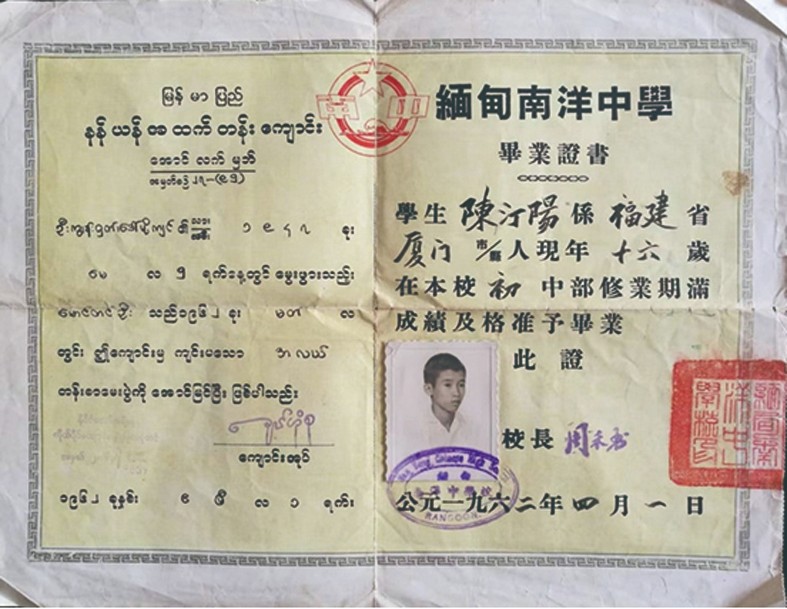 မြန် မာ ပြည်
နန် ယန် အ ထက် တန်း ကျောင်း
အောင် လက် မှတ်
၁၉၄၇ ခု
မေ လ ၅ ရက်နေ့တွင် မွေးဖွားသည့်
သည် ၁၉၆၂ ခု မတ် လ
တွင်း ဤကျောင်းမှ ကျင်းပသော အလယ်
တန်းစာမေးပွဲကို အောင်မြင်ပြီး ဖြစ်ပါသည်။
ကျောင်းအုပ်
၁၉၆၂ ခုနှစ်၊ ဧ ပြီ လ ၁ ရက်။
南中
緬甸南洋中學
畢業證書
學生 陳汀陽 係 福建 省
厦门 市/縣 人現年 十六 歲
在本校 初 中部修業期滿
成績及格准予畢業
此證
校長
公元一九六二年四月一日
緬甸南洋中學校印
RANGOON